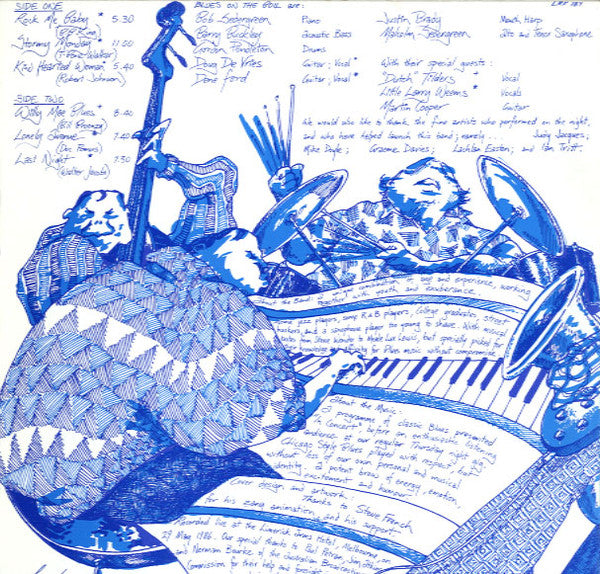 SIDE ONE
Rock Me Baby * 5.30
(BB King)
Stormy Monday 11.00
(T-Bone Walker)
Kind Hearted Woman * 5.40
(Robert Johnson)
SIDE TWO
8.40
(Bill Broonzy)
Lonely Avenue 7.40
(Doc Pomus)
Last Night * 7.30
(Walter Jacobs)
BLUES ON THE BOIL are:
Bob Sedergreen Piano
Barry Buckley Acoustic Bass
Gordon Pendleton Drums
Doug De Vries Guitar; Vocal
Dave Ford Guitar; Vocal
Justin Brady Mouth Harp
Malcolm Sedergreen Alto and Tenor Saxophone
With their special guests:
"Dutch" Tilders Vocal
Little Larry Weems Vocals
Martin Cooper Guitar
We would also like to thank the fine artists who performed on the night,
and who have helped launch this band; namely... Judy Jacques;
Mike Doyle; Graeme Davies; Lachlan Easton; and Ian
About the Band: is animation, flair and experience, working
together with youth and exuberance.
some jazz players, some R&B players, College graduates, street
and a saxophone player too young to shave. With musical
but specially picked for
Blues music without compromise
About the Music:
A programme of classic Blues presented
Concert to an enthusiastic listening
audience at our regular Thursday night gig.
Chicago Style Blues played with respect but
without loss of our own personal and musical
identity. A potent brew of energy, emotion,
excitement and humour.
Cover design and artwork.
Thanks to Steve French
for his zany animation, and his support.
Recorded live at the Limerick Arms Hotel, Melbourne on
29 May 1986. Our special thanks to Jim
and Norman Bourke of the Australian Broadcasting
for their help and